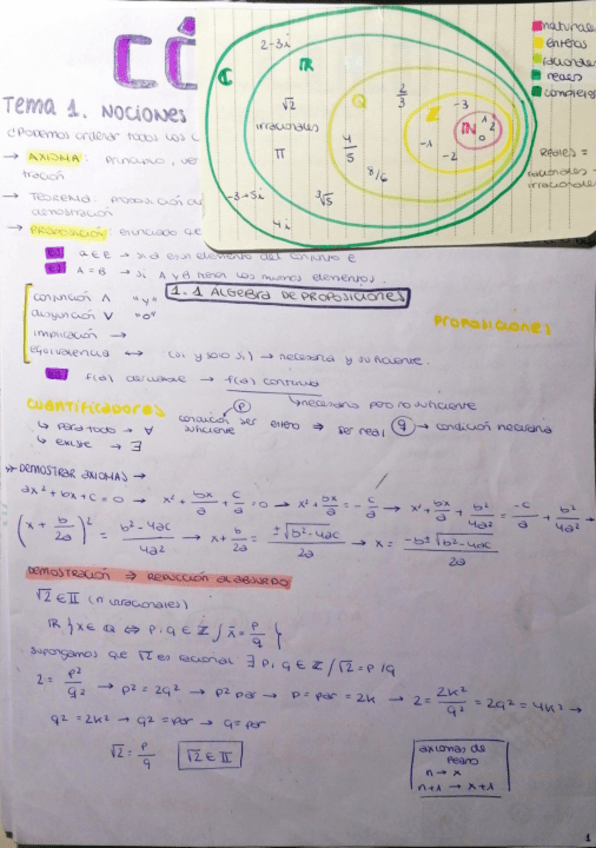 CÓ
Tema 1. NOCIONES
¿Podemos ordenar todos los c
→ AXIOMA: principio, ve
tración
→ TEOREMA: proposición
demostración
→ PROPOSICIÓN: enunciado
a ∈ E → si a es elemento del conjunto E
A = B → si A y B tienen los mismos elementos.
2-3i
C
R
√2
irracionales
π
Q
2/3
4/5
8/6
∛5
Z
-3
-1
-2
N
1
2
0
-3+5i
4i
naturale
enteros
racionale
reales
complejos
REALES =
racionales +
irracionales
1.1 ALGEBRA DE PROPOSICIONES
PROPOSICIONES
conjunción ∧ "y"
disyunción ∨ "o"
implicación →
Equivalencia ↔ (si y solo si) → necesaria y suficiente.
f(a) derivable → f(a) continua
↳ necesaria pero no suficiente
CUANTIFICADORES
↳ para todo → ∀
↳ existe → ∃
p condición suficiente ser entero ⇒ ser real q → condición necesaria
DEMOSTRAR AXIOMAS →
ax² + bx + c = 0 → x² + bx/a + c/a = 0 → x² + bx/a = -c/a → x² + bx/a + b²/4a² = -c/a + b²/4a² →
(x + b/2a)² = b²-4ac/4a² → x + b/2a = ±√b²-4ac/2a → x = -b±√b²-4ac/2a
DEMOSTRACIÓN ⇒ REDUCCIÓN AL ABSURDO
√2 ∈ II (n irracionales)
R { x ∈ Q ⇔ p, q ∈ Z / x = p/q }
Supongamos que √2 es racional ∃ p, q ∈ Z / √2 = p/q
2 = p²/q² → p² = 2q² → p² par → p = par = 2k → 2 = 2k²/q² = 2q² = 4k² →
q² = 2k² → q² = par → q = par
√2 = p/q √2 ∈ II
axiomas de
Peano
n → x
n+1 → x+1
1